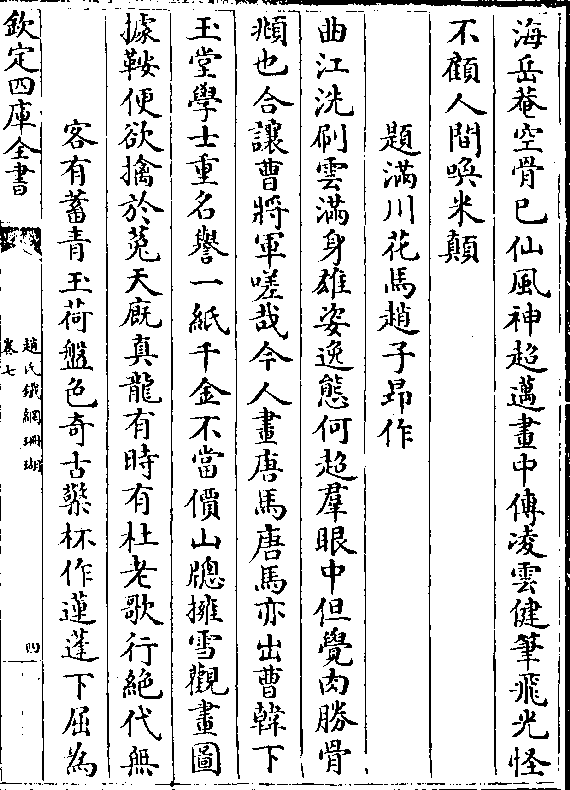 海岳菴空骨已仙風神超邁畫中傳凌雲健筆飛光怪
不顧人間喚米顛
題滿川花馬趙子昂作
曲江洗刷雲滿身雄姿逸態何超羣眼中但覺肉勝骨
頮也合讓曹將軍嗟哉今人畫唐馬唐馬亦出曹韓下
玉堂學士重名譽一紙千金不當價山牕擁雪觀畫圖
據鞍便欲擒於菟天廐真龍有時有杜老歌行絕代無
客有蓄青玉荷盤色奇古槃杯作蓮蓬下屈為
欽定四庫全書
趙氏鐵網珊瑚
卷七
四